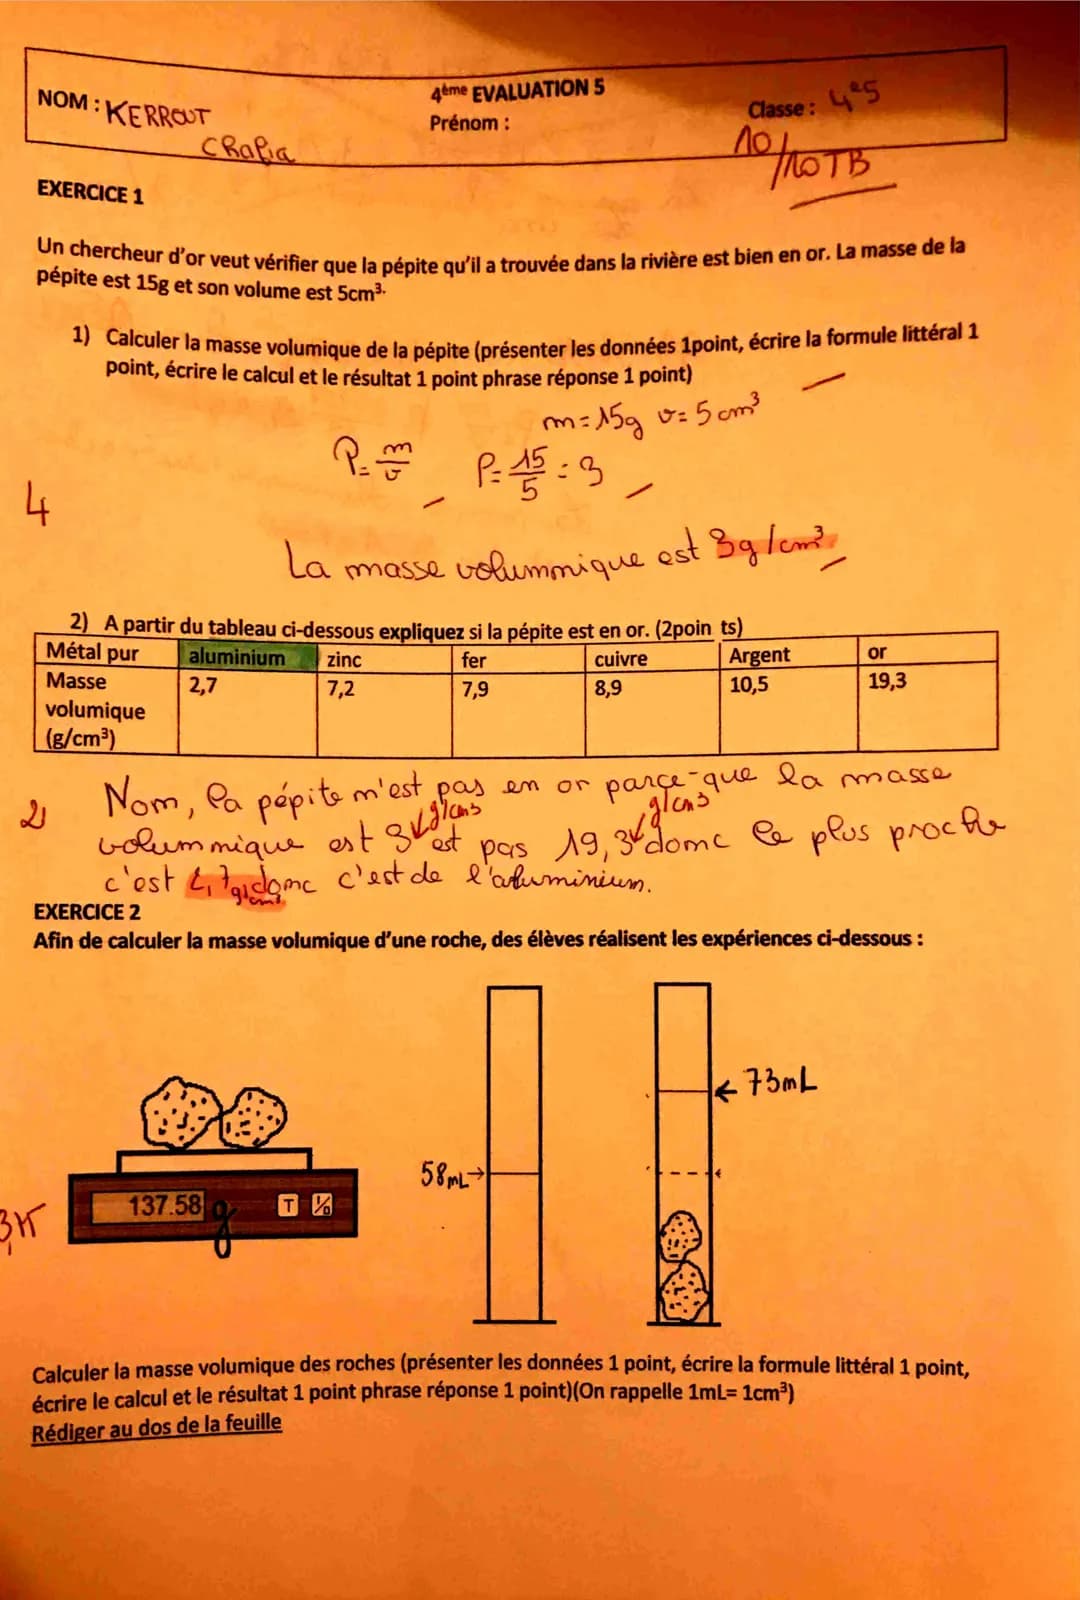 4ème EVALUATION 5
NOM : KERROUT
Prénom :
Classe : 4e5
Chafia
10/10 TB
EXERCICE 1
Un chercheur d'or veut vérifier que la pépite qu'il a trouvée dans la rivière est bien en or. La masse de la
pépite est 15g et son volume est 5cm³.
1) Calculer la masse volumique de la pépite (présenter les données 1point, écrire la formule littéral 1
point, écrire le calcul et le résultat 1 point phrase réponse 1 point)
m = 15g v = 5 cm³
P = m/v P = 15/5 = 3
4
La masse volummique est 3g/cm³
2) A partir du tableau ci-dessous expliquez si la pépite est en or. (2poin ts)
Métal pur aluminium zinc fer cuivre Argent or
Masse 2,7 7,2 7,9 8,9 10,5 19,3
volumique
(g/cm³)
2
Nom, la pépite m'est pas en or parce-que la masse
g/cm3 g/cm3
volummique est 3 est pas 19,3 domc le plus proche
c'est 2,7 g/cm3 domc c'est de l'aluminium.
EXERCICE 2
Afin de calculer la masse volumique d'une roche, des élèves réalisent les expériences ci-dessous :
73mL
58mL
137.58 g T
Calculer la masse volumique des roches (présenter les données 1 point, écrire la formule littéral 1 point,
écrire le calcul et le résultat 1 point phrase réponse 1 point)(On rappelle 1mL= 1cm³)
Rédiger au dos de la feuille